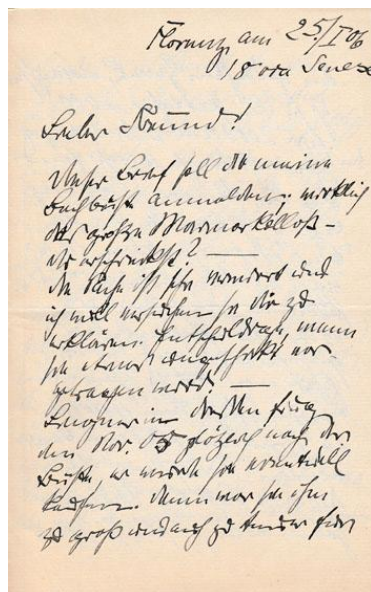 Florenz, am 25./I 06
18 via Senese
Lieber Freund!
Dieser Brief soll dir meine
Bach büste anmelden, wirklich
den großen Marmorkolloß –
du erschrickst? —
Die Sache ist sehr verändert und
ich will versuchen sie dir zu
erklären. Entschuldige, wenn
sie etwas ungeschickt vor-
getragen wird. —
in Dresden frug
den Nov. 05 plötzlich nach der
Büste, er würde sie eventuell
kaufen. Dann war sie ihm
zu groß und auch zu teuer für